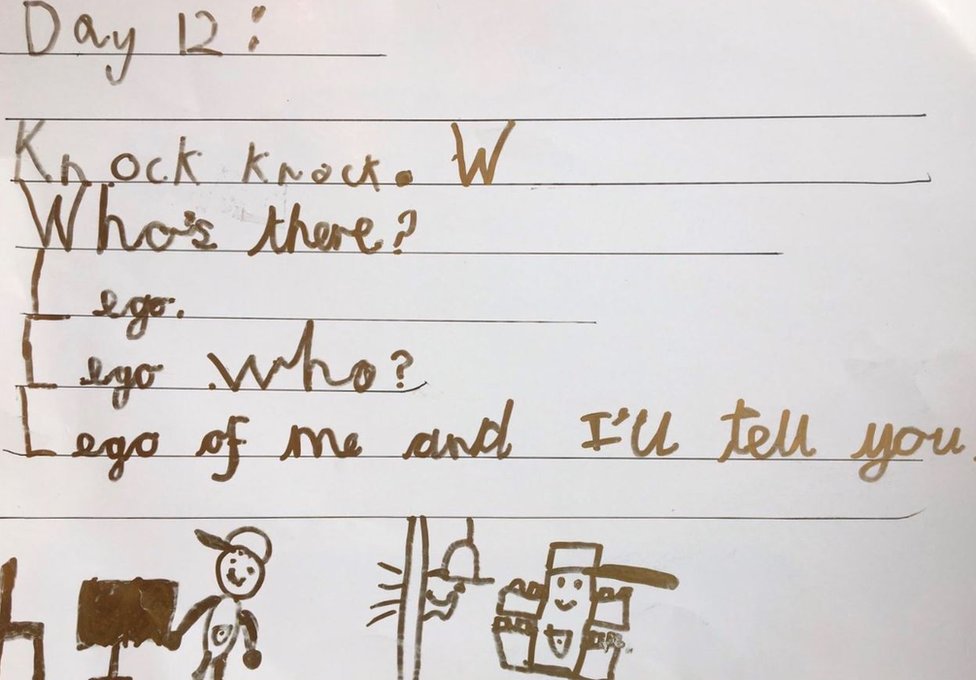 Day 12:
Knock knock. W
Who's there?
Lego.
Lego who?
Lego of me and I'll tell you.